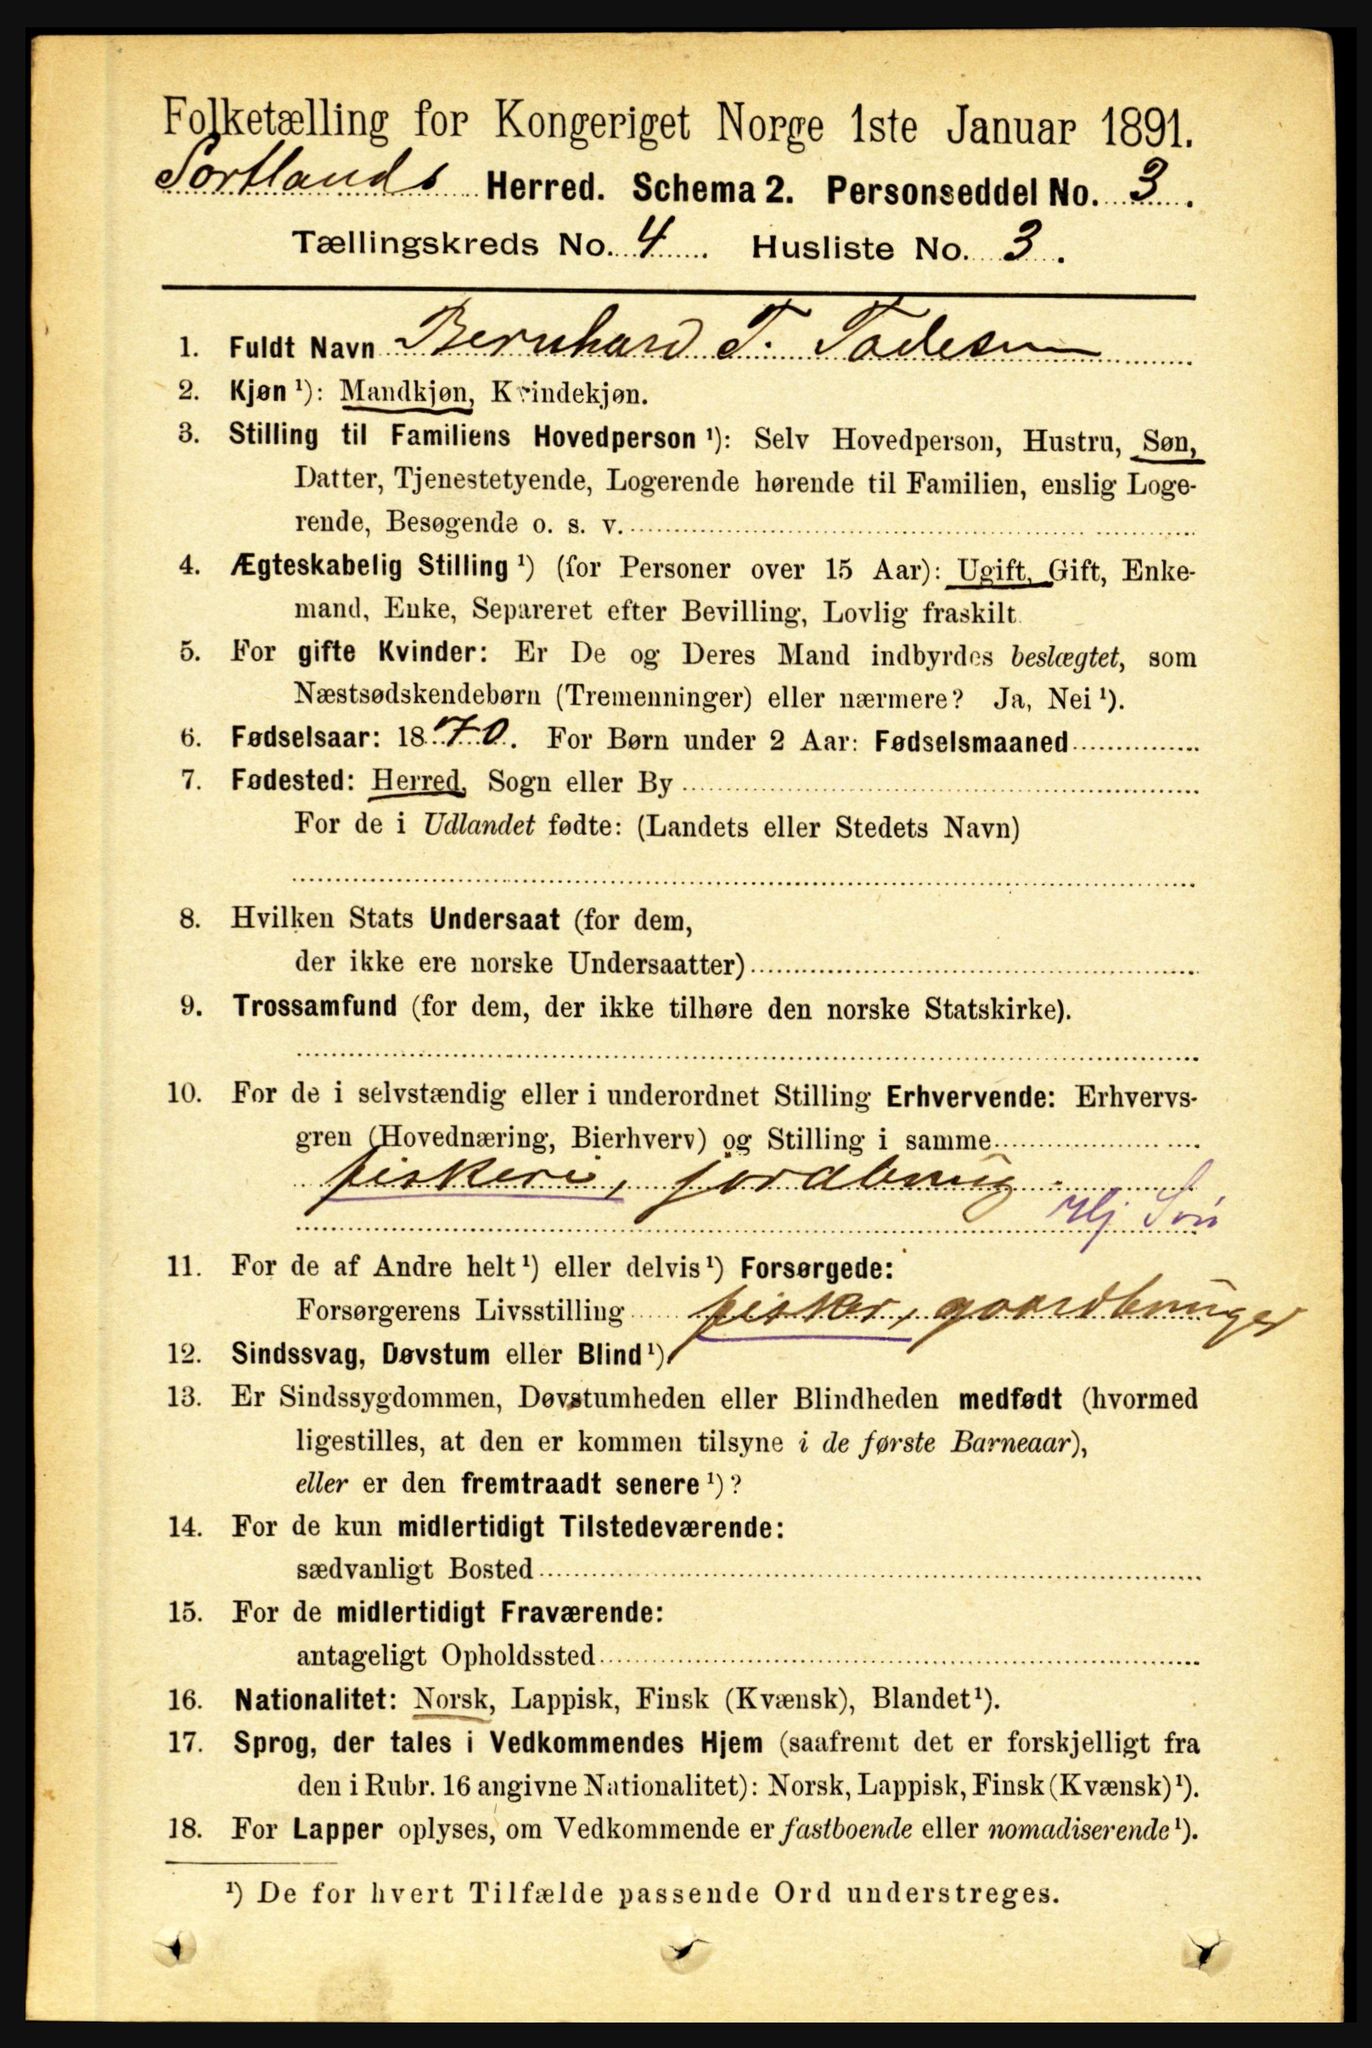 Folketælling for Kongeriget Norge 1ste Januar 1891.
Sortlands Herred. Schema 2. Personseddel No. 3.
Tællingskreds No. 4. Husliste No. 3.
1. Fuldt Navn Bernhard T. Todesen
2. Kjøn ¹): Mandkjøn, Kvindekjøn.
3. Stilling til Familiens Hovedperson ¹): Selv Hovedperson, Hustru, Søn,
Datter, Tjenestetyende, Logerende hørende til Familien, enslig Loge-
rende, Besøgende o. s. v.
4. Ægteskabelig Stilling ¹) (for Personer over 15 Aar): Ugift, Gift, Enke-
mand, Enke, Separeret efter Bevilling, Lovlig fraskilt.
5. For gifte Kvinder: Er De og Deres Mand indbyrdes beslægtet, som
Næstsødskendebørn (Tremenninger) eller nærmere? Ja, Nei ¹).
6. Fødselsaar: 1870. For Børn under 2 Aar: Fødselsmaaned
7. Fødested: Herred, Sogn eller By
For de i Udlandet fødte: (Landets eller Stedets Navn)
8. Hvilken Stats Undersaat (for dem,
der ikke ere norske Undersaatter)
9. Trossamfund (for dem, der ikke tilhøre den norske Statskirke).
10. For de i selvstændig eller i underordnet Stilling Erhvervende: Erhvervs-
gren (Hovednæring, Bierhverv) og Stilling i samme
fiskeri, jordbrug.
Hj. Søn
11. For de af Andre helt ¹) eller delvis ¹) Forsørgede:
Forsørgerens Livsstilling fisker, gaardbruger
12. Sindssvag, Døvstum eller Blind ¹)
13. Er Sindssygdommen, Døvstumheden eller Blindheden medfødt (hvormed
ligestilles, at den er kommen tilsyne i de første Barneaar),
eller er den fremtraadt senere ¹)?
14. For de kun midlertidigt Tilstedeværende:
sædvanligt Bosted
15. For de midlertidigt Fraværende:
antageligt Opholdssted
16. Nationalitet: Norsk, Lappisk, Finsk (Kvænsk), Blandet ¹).
17. Sprog, der tales i Vedkommendes Hjem (saafremt det er forskjelligt fra
den i Rubr. 16 angivne Nationalitet): Norsk, Lappisk, Finsk (Kvænsk) ¹).
18. For Lapper oplyses, om Vedkommende er fastboende eller nomadiserende ¹).
¹) De for hvert Tilfælde passende Ord understreges.